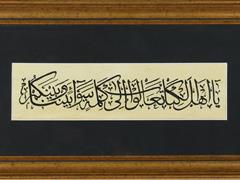 يا أهل الكتاب تعالوا إلى كلمة سواء بيننا وبينكم